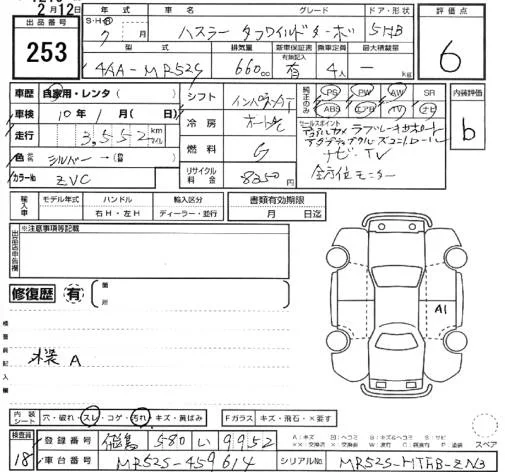 2月12日
出品番号
253
年式 車名 グレード ドア・形状
S・H・R 7 月 ハスラー タフワイルドターボ 5HB
型式 排気量 新車保証書 有無記入 乗車定員 最大積載量
4AA-MR52S 660cc 有 4人 — kg
評価点
6
車歴 自家用・レンタ( )
車検 10年 1月( 日)
走行 3,552 km マイル
色 シルバー →(色)
カラーNo ZVC
シフト インパネAT
冷房 オートAC
燃料 G
リサイクル料金 8250円
純正のみ PS PW AW SR
ABS エアB TV ナビ
セールスポイント
ナビ・TV
全方位モニター
内装評価
b
輸入車 モデル年式 ハンドル 輸入区分
右H・左H ディーラー・並行
書類有効期限
月 日迄
出品店申告欄 ※注意事項等記載
修復歴 有 箇所
検査員記入欄
A1
内装シート 穴・破れ・スレ・コゲ・汚れ・キズ・黄ばみ
Fガラス キズ・飛石・×要す
検査員 18
登録番号 飛鳥 580 い 9952
車台番号 MR52S-459614
シリアルNo MR52S-HTHB-ZN3
スペア